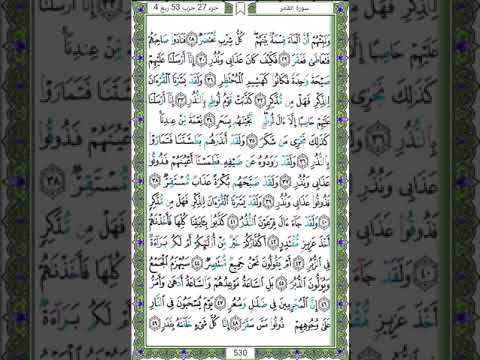 سورة القمر
جزء 27 حزب 53 ربع 4
وَنَبِّئْهُمْ أَنَّ ٱلْمَآءَ قِسْمَةٌۢ بَيْنَهُمْ ۖ كُلُّ شِرْبٍ مُّحْتَضَرٌ ٢٨ فَنَادَوْا۟ صَاحِبَهُمْ
فَتَعَاطَىٰ فَعَقَرَ ٢٩ فَكَيْفَ كَانَ عَذَابِى وَنُذُرِ ٣٠ إِنَّآ أَرْسَلْنَا عَلَيْهِمْ
صَيْحَةً وَٰحِدَةً فَكَانُوا۟ كَهَشِيمِ ٱلْمُحْتَظِرِ ٣١ وَلَقَدْ يَسَّرْنَا ٱلْقُرْءَانَ
لِلذِّكْرِ فَهَلْ مِن مُّدَّكِرٍ ٣٢ كَذَّبَتْ قَوْمُ لُوطٍۭ بِٱلنُّذُرِ ٣٣ إِنَّآ أَرْسَلْنَا
عَلَيْهِمْ حَاصِبًا إِلَّآ ءَالَ لُوطٍ ۖ نَّجَّيْنَٰهُم بِسَحَرٍ ٣٤ نِّعْمَةً مِّنْ عِندِنَا ۚ
كَذَٰلِكَ نَجْزِى مَن شَكَرَ ٣٥ وَلَقَدْ أَنذَرَهُم بَطْشَتَنَا فَتَمَارَوْا۟
بِٱلنُّذُرِ ٣٦ وَلَقَدْ رَٰوَدُوهُ عَن ضَيْفِهِۦ فَطَمَسْنَآ أَعْيُنَهُمْ فَذُوقُوا۟
عَذَابِى وَنُذُرِ ٣٧ وَلَقَدْ صَبَّحَهُم بُكْرَةً عَذَابٌ مُّسْتَقِرٌّ ٣٨
فَذُوقُوا۟ عَذَابِى وَنُذُرِ ٣٩ وَلَقَدْ يَسَّرْنَا ٱلْقُرْءَانَ لِلذِّكْرِ فَهَلْ مِن مُّدَّكِرٍ
٤٠ وَلَقَدْ جَآءَ ءَالَ فِرْعَوْنَ ٱلنُّذُرُ ٤١ كَذَّبُوا۟ بِـَٔايَٰتِنَا كُلِّهَا فَأَخَذْنَٰهُمْ
أَخْذَ عَزِيزٍ مُّقْتَدِرٍ ٤٢ أَكُفَّارُكُمْ خَيْرٌ مِّنْ أُو۟لَٰٓئِكُمْ أَمْ لَكُم بَرَآءَةٌ
فِى ٱلزُّبُرِ ٤٣ أَمْ يَقُولُونَ نَحْنُ جَمِيعٌ مُّنتَصِرٌ ٤٤ سَيُهْزَمُ ٱلْجَمْعُ
وَيُوَلُّونَ ٱلدُّبُرَ ٤٥ بَلِ ٱلسَّاعَةُ مَوْعِدُهُمْ وَٱلسَّاعَةُ أَدْهَىٰ وَأَمَرُّ
٤٦ إِنَّ ٱلْمُجْرِمِينَ فِى ضَلَٰلٍ وَسُعُرٍ ٤٧ يَوْمَ يُسْحَبُونَ فِى ٱلنَّارِ
عَلَىٰ وُجُوهِهِمْ ذُوقُوا۟ مَسَّ سَقَرَ ٤٨ إِنَّا كُلَّ شَىْءٍ خَلَقْنَٰهُ بِقَدَرٍ ٤٩
530